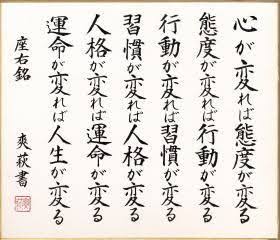 心が変れば態度が変る
態度が変れば行動が変る
行動が変れば習慣が変る
習慣が変れば人格が変る
人格が変れば運命が変る
運命が変れば人生が変る
座右銘
爽萩書